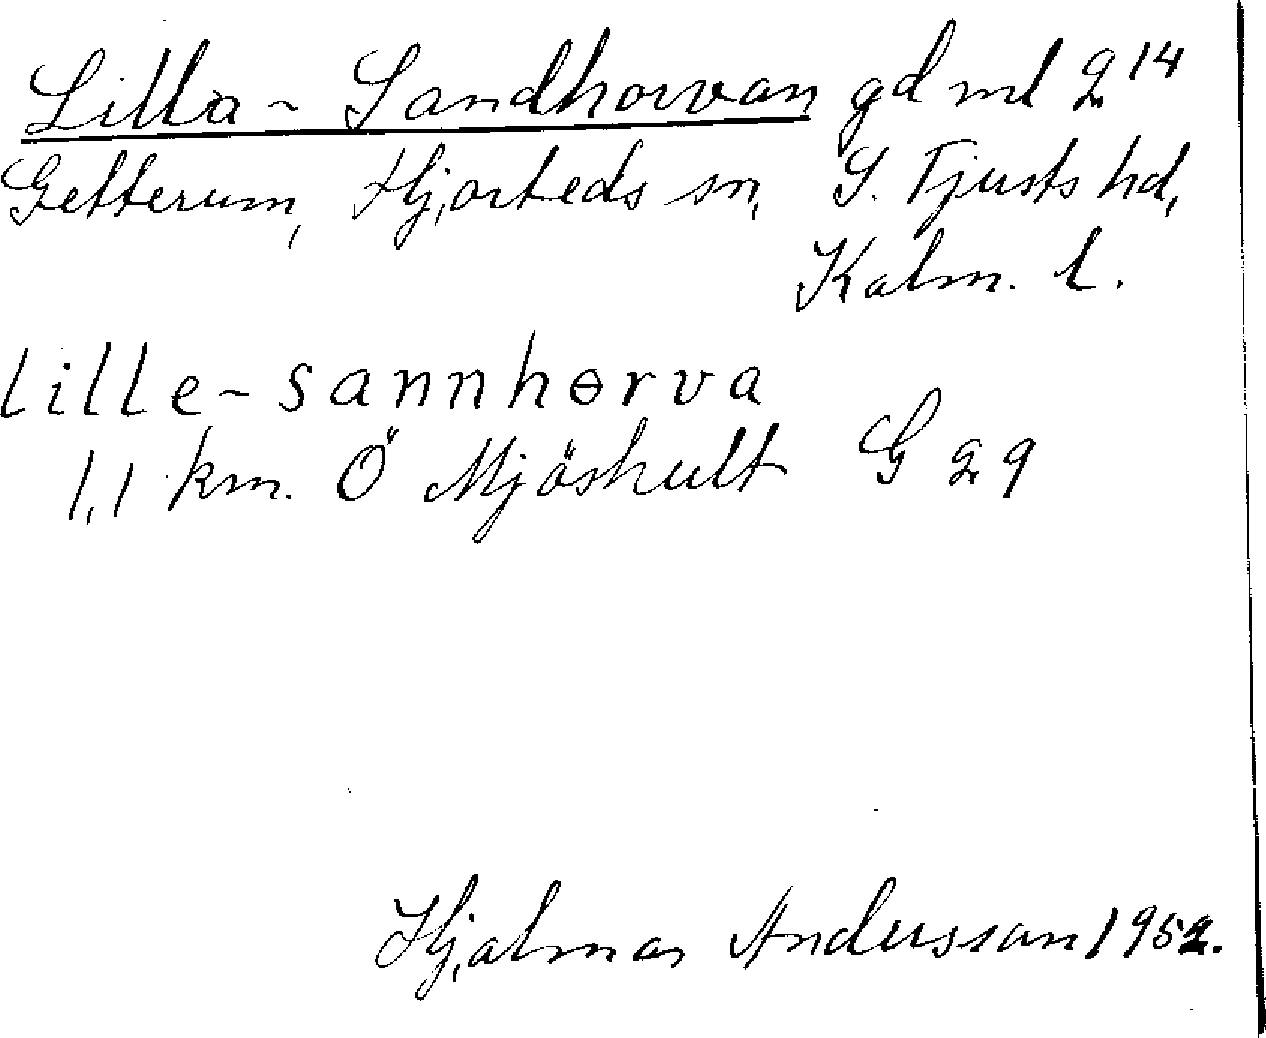 Lilla-Sandhorvan gd ml 2 14
Getterum, Hjorteds sn, S. Tjusts hd,
Kalm. l.
lille-sannhɵrva
1,1 km. Ö Mjöshult G 29
Hjalmar Andersson 1952.